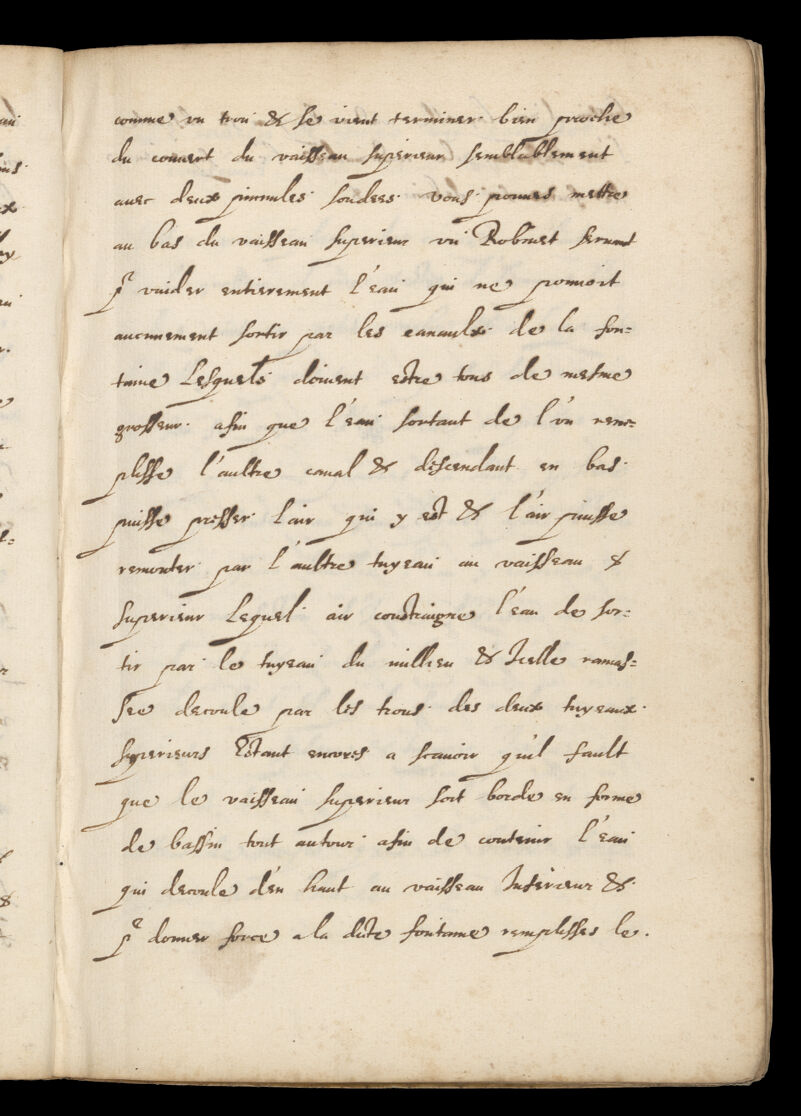 comme vn trou & se vient terminer bien proche
du couuert du vaisseau superieur semblablement
auec deux pinnules soudees vous pouues mettre
au bas du vaisseau superieur vn Robinet seruant
pr vuider entierement l'eau qui ne pouuoit
aucunement sortir par les canaulx de la fon=
taine Lesquels doiuent estre tous de mesme
grosseur afin que l'eau sortant de l'vn rem=
plisse l'aultre canal & descendant en bas
puisse presser lair qui y est & l'air puisse
remonter par l'aultre tuyeau au vaisseau &
superieur Lequel air constraigne l'eau de sor=
tir par le tuyeau du millieu & Icelle ramas=
see decoule par les trous des deux tuyeaux
superieurs Estant encores a scauoir quil fault
que le vaisseau superieur soit borde en forme
de bassin tout autour afin de contenir l'eau
qui decoule d'en haut au vaisseau Inferieur &
pr donner force a la dicte fontaine remplisses le.